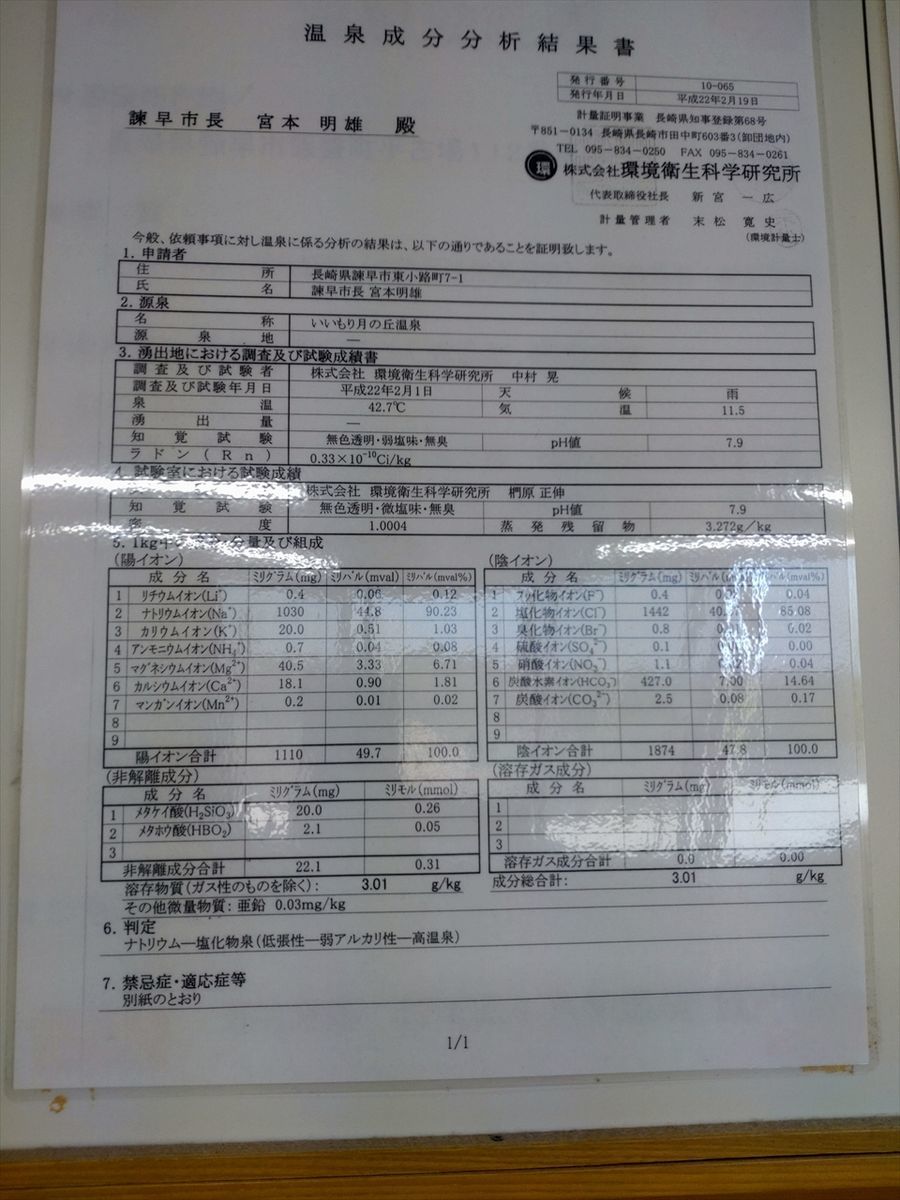 温泉成分分析結果書
発行番号 10-065
発行年月日 平成22年2月19日
諫早市長 宮本 明雄 殿
計量証明事業 長崎県知事登録第68号
〒851-0134 長崎県長崎市田中町603番3(卸団地内)
TEL 095-834-0250 FAX 095-834-0261
環 株式会社環境衛生科学研究所
代表取締役社長 新宮 一広
計量管理者 末松 寛史
(環境計量士)
今般、依頼事項に対し温泉に係る分析の結果は、以下の通りであることを証明致します。
1. 申請者
住所 長崎県諫早市東小路町7-1
氏名 諫早市長 宮本明雄
2. 源泉
名称 いいもり月の丘温泉
源泉地 ―
3. 湧出地における調査及び試験成績書
調査及び試験者 株式会社 環境衛生科学研究所 中村 晃
調査及び試験年月日 平成22年2月1日 天候 雨
泉温 42.7℃ 気温 11.5
湧出量 ―
知覚試験 無色透明・弱塩味・無臭 pH値 7.9
ラドン(Rn) 0.33×10⁻¹⁰Ci/kg
4. 試験室における試験成績
株式会社 環境衛生科学研究所 椚原 正伸
知覚試験 無色透明・微塩味・無臭 pH値 7.9
密度 1.0004 蒸発残留物 3.272g/kg
5. 1kg中 分量及び組成
(陽イオン) (陰イオン)
成分名 ミリグラム(mg) ミリバル(mval) ミリバル(mval%) 成分名 ミリグラム(mg) ミリバル (mval%)
1 リチウムイオン(Li⁺) 0.4 0.06 0.12 1 フッ化物イオン(F⁻) 0.4 0.04
2 ナトリウムイオン(Na⁺) 1030 44.8 90.23 2 塩化物イオン(Cl⁻) 1442 40. 85.08
3 カリウムイオン(K⁺) 20.0 0.51 1.03 3 臭化物イオン(Br⁻) 0.8 0.02
4 アンモニウムイオン(NH₄⁺) 0.7 0.04 0.08 4 硫酸イオン(SO₄²⁻) 0.1 0.00
5 マグネシウムイオン(Mg²⁺) 40.5 3.33 6.71 5 硝酸イオン(NO₃⁻) 1.1 0.04
6 カルシウムイオン(Ca²⁺) 18.1 0.90 1.81 6 炭酸水素イオン(HCO₃⁻) 427.0 7.00 14.64
7 マンガンイオン(Mn²⁺) 0.2 0.01 0.02 7 炭酸イオン(CO₃²⁻) 2.5 0.08 0.17
8 8
9 9
陽イオン合計 1110 49.7 100.0 陰イオン合計 1874 47.8 100.0
(非解離成分) (溶存ガス成分)
成分名 ミリグラム(mg) ミリモル(mmol) 成分名 ミリグラム(mg) ミリモル(mmol)
1 メタケイ酸(H₂SiO₃) 20.0 0.26 1
2 メタホウ酸(HBO₂) 2.1 0.05 2
3 3
非解離成分合計 22.1 0.31 溶存ガス成分合計 0.0 0.00
溶存物質(ガス性のものを除く): 3.01 g/kg 成分総合計: 3.01 g/kg
その他微量物質: 亜鉛 0.03mg/kg
6. 判定
ナトリウム―塩化物泉(低張性―弱アルカリ性―高温泉)
7. 禁忌症・適応症等
別紙のとおり
1/1